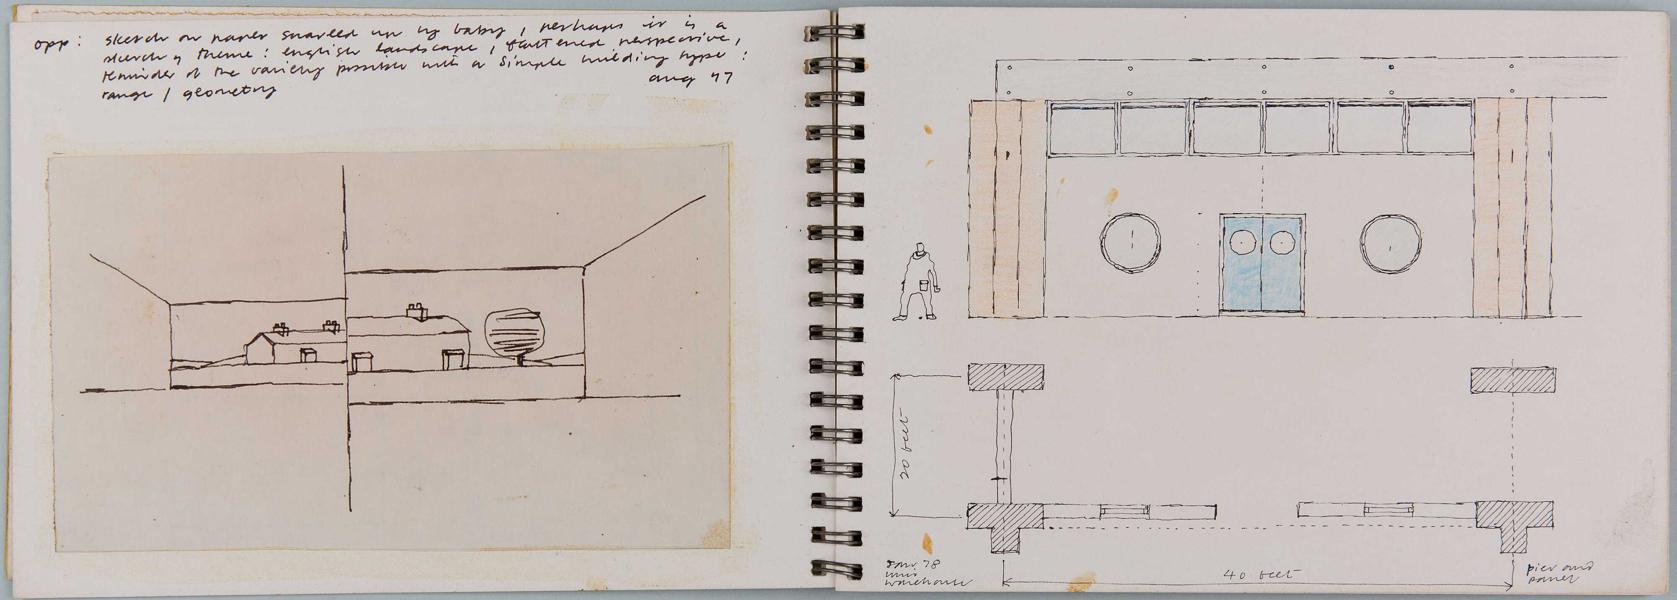 opp: sketch on paper snarled up by baby, perhaps it is a
sketch of theme: english landscape, flattened perspective,
reminder of the variety possible with a simple building type:
range / geometry aug 77
20 feet
Jan 78
mini
warehouse
40 feet
pier and
panel